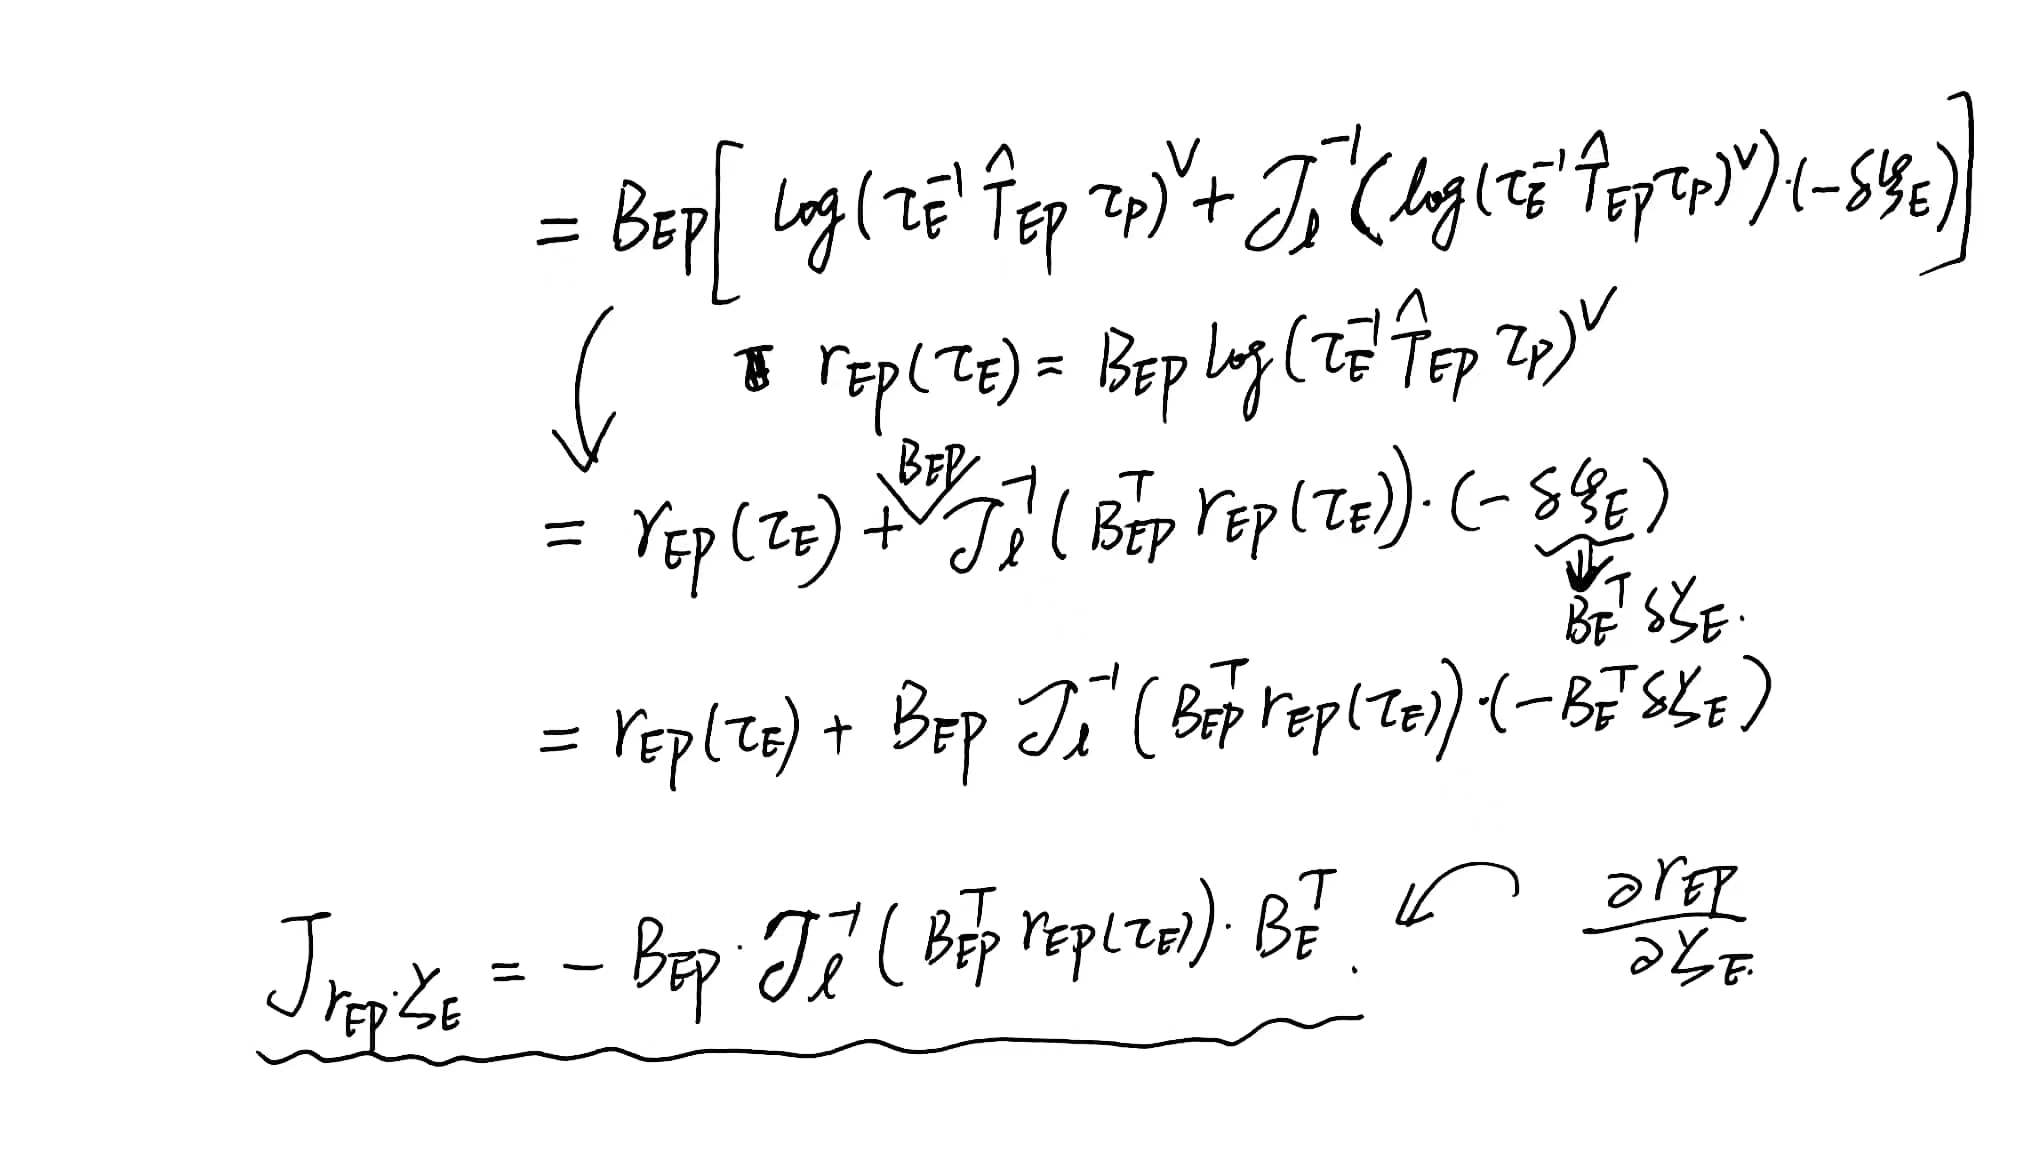 = B_EP [ log(τ_E^-1 T̂_EP τ_P)^∨ + J_l^-1 (log(τ_E^-1 T̂_EP τ_P)^∨)·(-δξ_E) ]
r_EP(τ_E) = B_EP log(τ_E^-1 T̂_EP τ_P)^∨
B_EP
= r_EP(τ_E) + J_l^-1 (B_EP^T r_EP(τ_E))·(-δξ_E)
⇓
B_E^T δζ_E.
= r_EP(τ_E) + B_EP J_l^-1 (B_EP^T r_EP(τ_E))·(-B_E^T δζ_E)
J_r_EP·ζ_E = - B_EP · J_l^-1 (B_EP^T r_EP(τ_E))· B_E^T. ∂r_EP / ∂ζ_E.